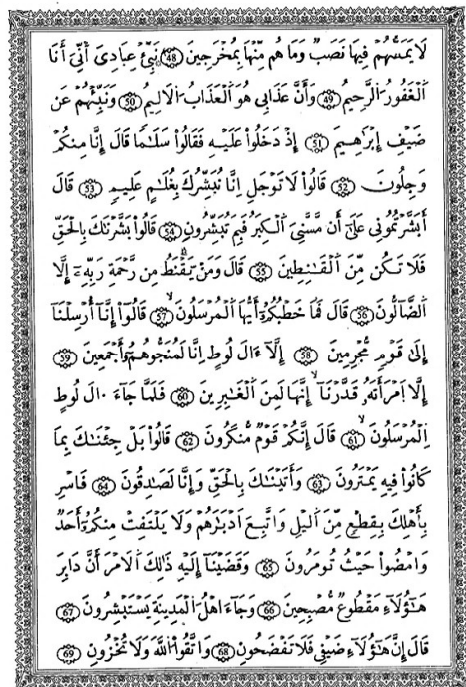 لَا يَمَسُّهُمْ فِيهَا نَصَبٌ وَمَا هُم مِّنْهَا بِمُخْرَجِينَ ﴿48﴾ نَبِّئْ عِبَادِيَ أَنِّيَ أَنَا
اَلْغَفُورُ الرَّحِيمُ ﴿49﴾ وَأَنَّ عَذَابِي هُوَ اَلْعَذَابُ اَلَالِيمُ ﴿50﴾ وَنَبِّئْهُمْ عَن
ضَيْفِ إِبْرَاهِيمَ ﴿51﴾ إِذْ دَخَلُواْ عَلَيْهِ فَقَالُواْ سَلَٰمًا قَالَ إِنَّا مِنكُمْ
وَجِلُونَ ﴿52﴾ قَالُواْ لَا تَوْجَلِ اِنَّا نُبَشِّرُكَ بِغُلَٰمٍ عَلِيمٍ ﴿53﴾ قَالَ
أَبَشَّرْتُمُونِي عَلَىٰ أَن مَّسَّنِيَ اَلْكِبَرُ فَبِمَ تُبَشِّرُونِ ﴿54﴾ قَالُواْ بَشَّرْنَٰكَ بِالْحَقِّ
فَلَا تَكُن مِّنَ اَلْقَٰنِطِينَ ﴿55﴾ قَالَ وَمَنْ يَّقْنَطُ مِن رَّحْمَةِ رَبِّهِۦٓ إِلَّا
اَلضَّآلُّونَ ﴿56﴾ قَالَ فَمَا خَطْبُكُمُۥٓ أَيُّهَا اَلْمُرْسَلُونَ ﴿57﴾ قَالُوٓاْ إِنَّآ أُرْسِلْنَآ
إِلَىٰ قَوْمٍ مُّجْرِمِينَ ﴿58﴾ إِلَّآ ءَالَ لُوطٍ اِنَّا لَمُنَجُّوهُمُۥٓ أَجْمَعِينَ ﴿59﴾
إِلَّا اَمْرَأَتَهُۥ قَدَّرْنَآ إِنَّهَا لَمِنَ اَلْغَٰبِرِينَ ﴿60﴾ فَلَمَّا جَآءَ الَ لُوطٍ
اِلْمُرْسَلُونَ ﴿61﴾ قَالَ إِنَّكُمْ قَوْمٌ مُّنكَرُونَ ﴿62﴾ قَالُواْ بَلْ جِئْنَٰكَ بِمَا
كَانُواْ فِيهِ يَمْتَرُونَ ﴿63﴾ وَأَتَيْنَٰكَ بِالْحَقِّ وَإِنَّا لَصَٰدِقُونَ ﴿64﴾ فَاسْرِ
بِأَهْلِكَ بِقِطْعٍ مِّنَ اَلَّيْلِ وَاتَّبِعَ اَدْبَٰرَهُمْ وَلَا يَلْتَفِتْ مِنكُمُۥٓ أَحَدٌ
وَامْضُواْ حَيْثُ تُومَرُونَ ﴿65﴾ وَقَضَيْنَآ إِلَيْهِ ذَٰلِكَ اَلَامْرَ أَنَّ دَابِرَ
هَٰٓؤُلَآءِ مَقْطُوعٌ مُّصْبِحِينَ ﴿66﴾ وَجَآءَ اهْلُ اُلْمَدِينَةِ يَسْتَبْشِرُونَ ﴿67﴾
قَالَ إِنَّ هَٰٓؤُلَآءِ ضَيْفِي فَلَا تَفْضَحُونِ ﴿68﴾ وَاتَّقُواْ اُللَّهَ وَلَا تُخْزُونِ ﴿69﴾